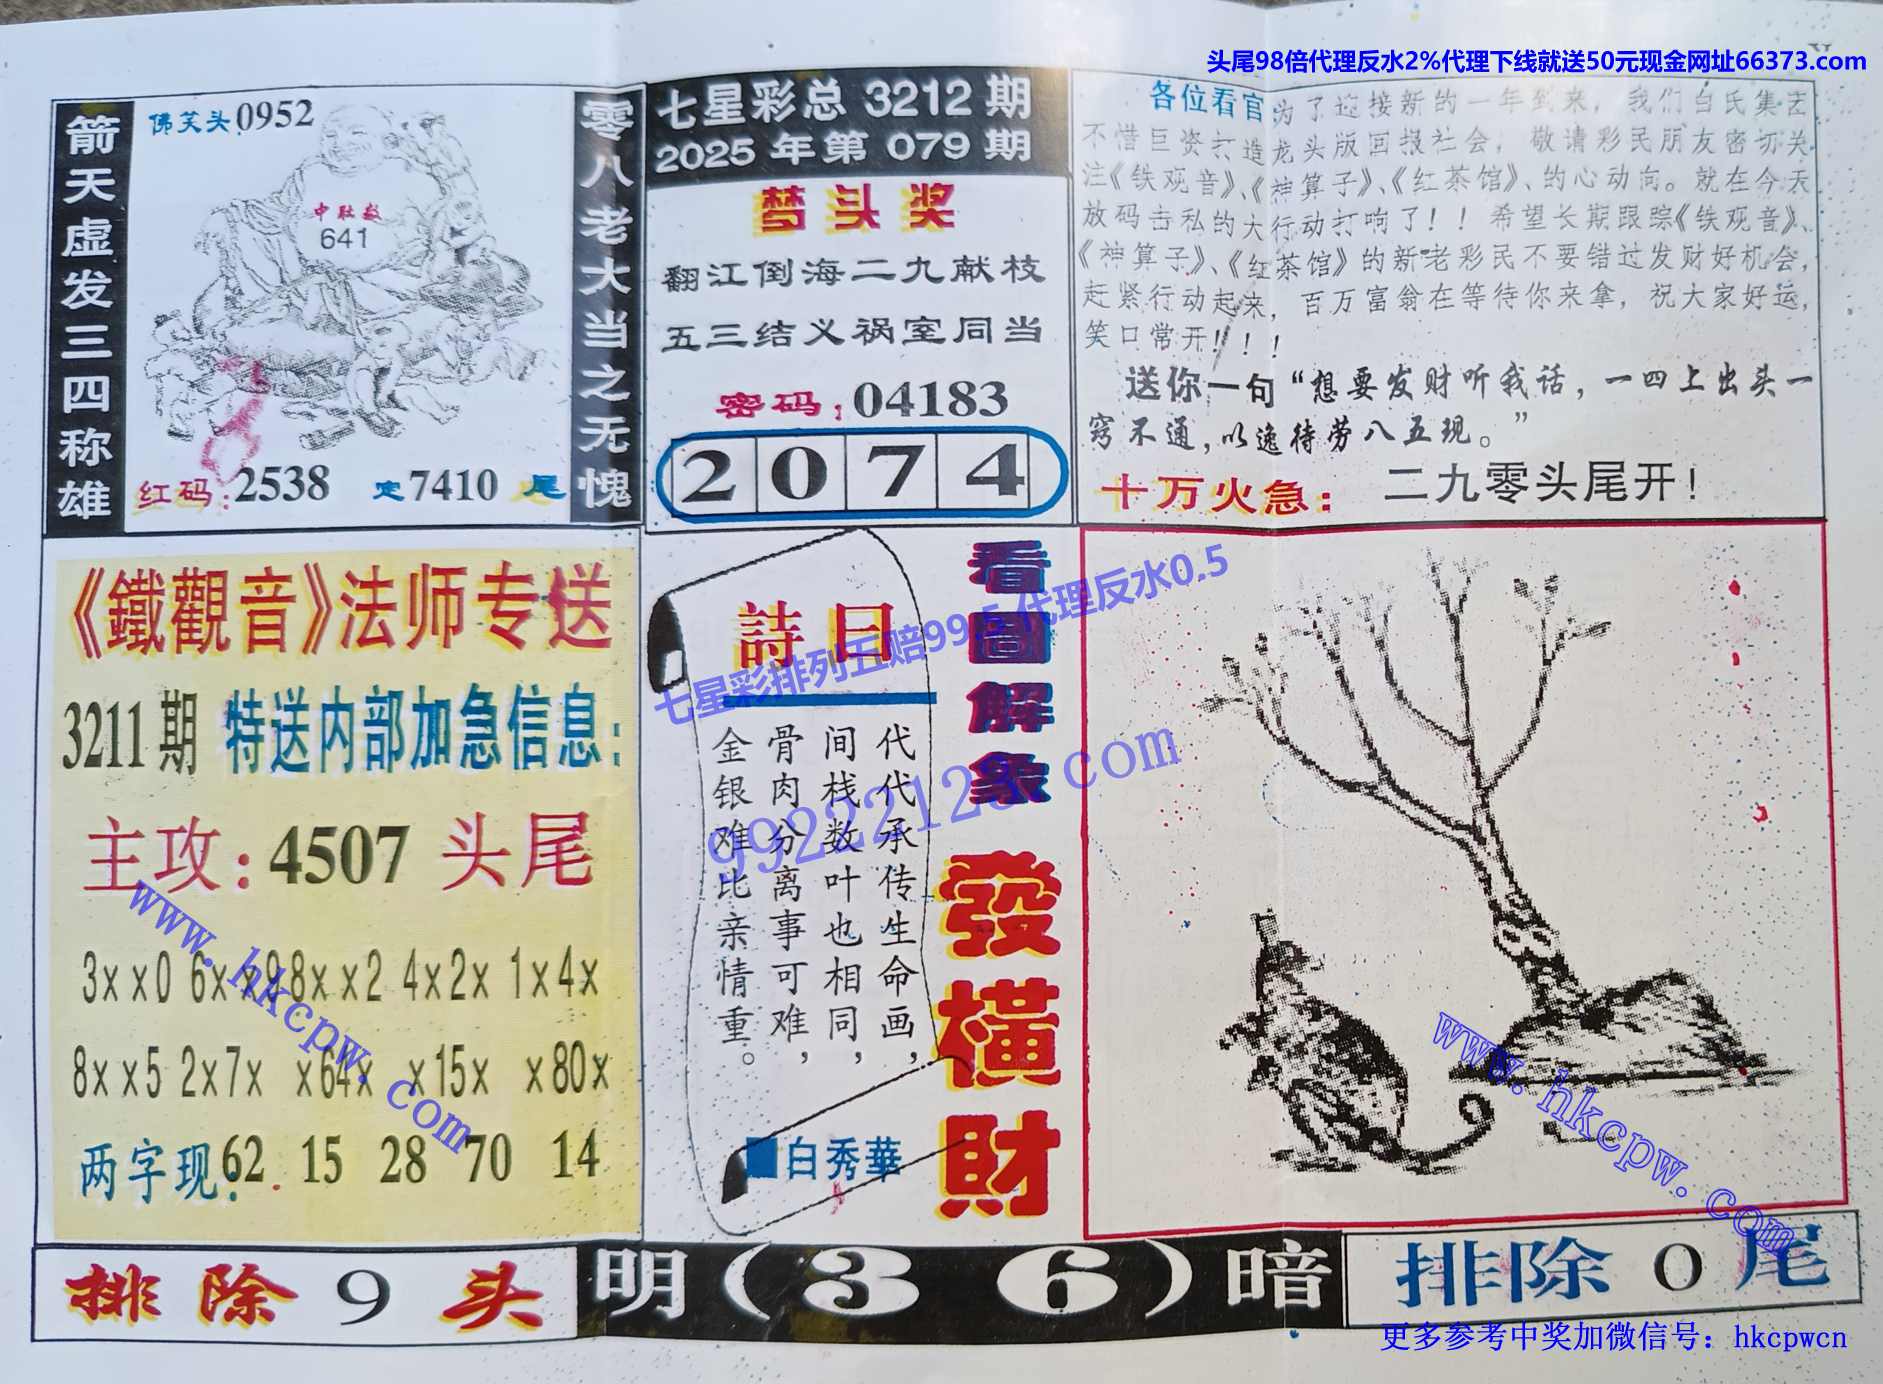 头尾98倍代理反水2%代理下线就送50元现金网址66373.com
箭天虚发三四称雄
佛笑头0952
中肚数
641
红码:2538 定7410尾
零八老大当之无愧
七星彩总 3212 期
2025 年第 079 期
梦头奖
翻江倒海二九献枝
五三结义祸室同当
密码:04183
2 0 7 4
各位看官为了迎接新的一年到来,我们白氏集艺
不惜巨资打造龙头版回报社会,敬请彩民朋友密切关
注《铁观音》、《神算子》、《红茶馆》、的心动向。就在今天
放码击私的大行动打响了!!希望长期跟踪《铁观音》、
《神算子》、《红茶馆》的新老彩民不要错过发财好机会,
赶紧行动起来,百万富翁在等待你来拿,祝大家好运,
笑口常开!!!
送你一句“想要发财听我话,一四上出头一
窍不通,以逸待劳八五现。”
十万火急:二九零头尾开!
《鐵觀音》法师专送
3211期 特送内部加急信息:
主攻:4507 头尾
3××0 6××9 8××2 4×2× 1×4×
8××5 2×7× ×64× ×15× ×80×
两字现:62 15 28 70 14
詩曰
代代承传生命画,
间栈数叶也相同,
骨肉分离事可难,
金银难比亲情重。
白秀華
看圖解象
發橫財
七星彩排列五赔99.5 代理反水0.5
99222123.com
www.hkcpw.com
www.hkcpw.com
排除 9 头
明(3 6)暗
排除 0 尾
更多参考中奖加微信号:hkcpwcn